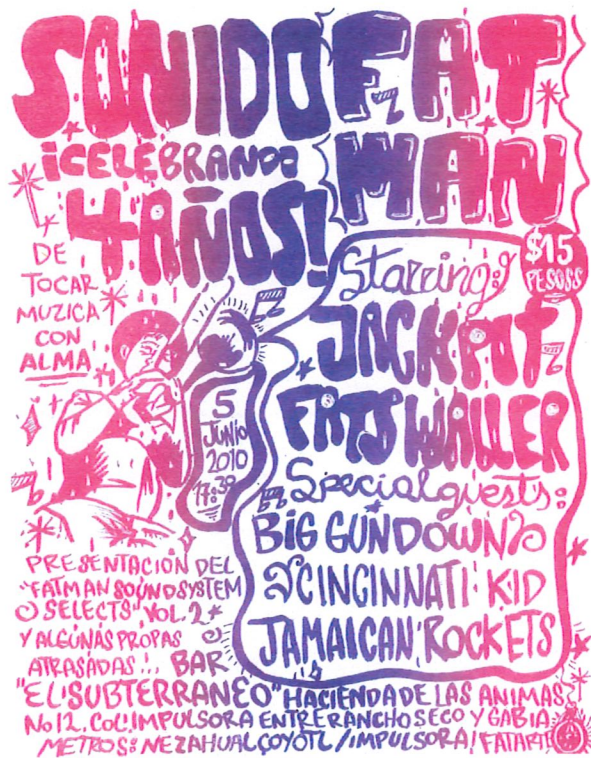 SONIDO FAT
MAN
¡CELEBRANDO
4 AÑOS!
DE
TOCAR
MUZICA
CON
ALMA
$15
PESOSS
Starring:
JACKPOT
FATS WALLER
Special guests:
BIG GUNDOWN
CINCINNATI KID
JAMAICAN ROCKETS
5
JUNIO
2010
17:30
PRESENTACIÓN DEL
"FATMAN SOUNDSYSTEM
SELECTS" VOL. 2
Y ALGUNAS PROPAS
ATRASADAS!, BAR
"EL SUBTERRANEO" HACIENDA DE LAS ANIMAS
No 12, COL. IMPULSORA ENTRE RANCHO SECO Y GABIA
METROS: NEZAHUALCOYOTL / IMPULSORA / FATARTE